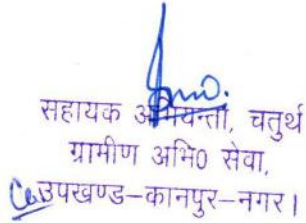 सहायक अभियन्ता, चतुर्थ
ग्रामीण अभि0 सेवा,
उपखण्ड-कानपुर-नगर।